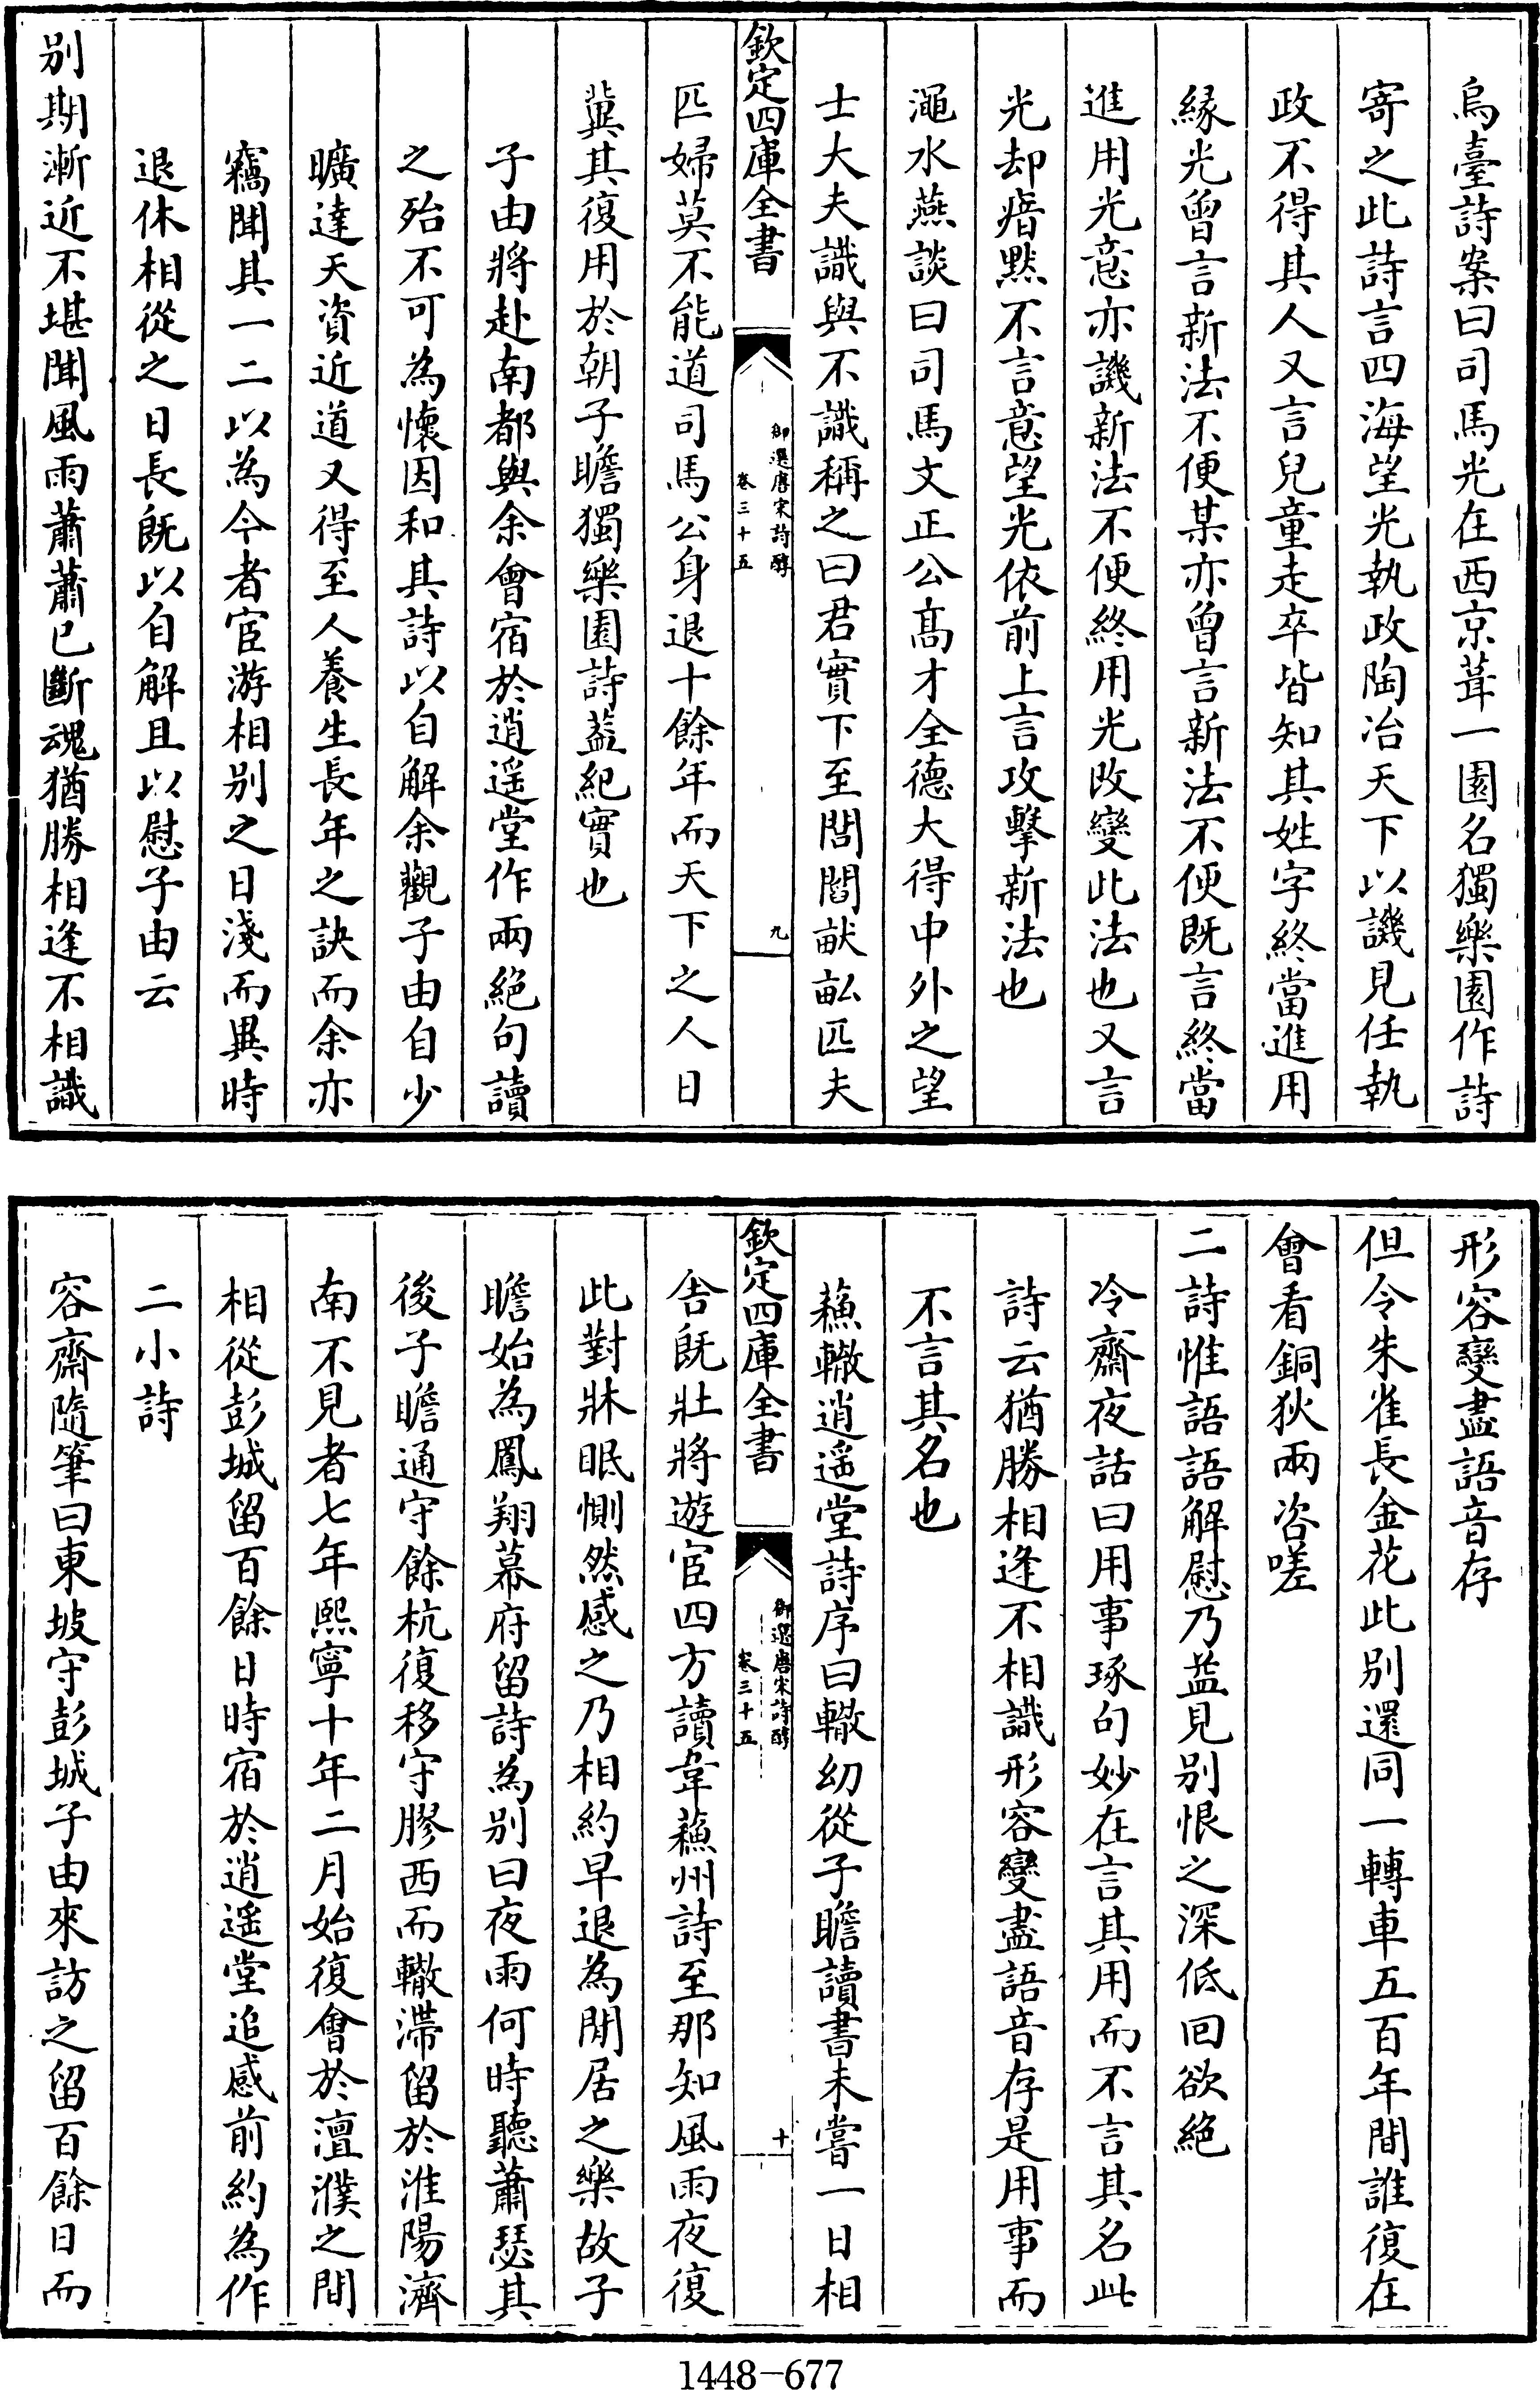 烏臺詩案曰司馬光在西京葺一園名獨樂園作詩
寄之此詩言四海望光執政陶冶天下以譏見任執
政不得其人又言兒童走卒皆知其姓字終當進用
縁光曾言新法不便某亦曾言新法不便既言終當
進用光意亦譏新法不便終用光改變此法也又言
光却瘖黙不言意望光依前上言攻擊新法也
澠水燕談曰司馬文正公髙才全德大得中外之望
士大夫識與不識稱之曰君實下至閭閻畎畆匹夫
欽定四庫全書
御選唐宋詩醇
卷三十五
九
匹婦莫不能道司馬公身退十餘年而天下之人日
冀其復用於朝子瞻獨樂園詩葢紀實也
子由將赴南都與余會宿於逍遥堂作兩絶句讀
之殆不可為懷因和其詩以自解余觀子由自少
曠達天資近道又得至人養生長年之訣而余亦
竊聞其一二以為今者宦游相别之日淺而異時
退休相從之日長既以自解且以慰子由云
别期漸近不堪聞風雨蕭蕭已斷魂猶勝相逢不相識
形容變盡語音存
但令朱雀長金花此别還同一轉車五百年間誰復在
會看銅狄兩咨嗟
二詩惟語語解慰乃益見别恨之深低回欲絶
冷齋夜話曰用事琢句妙在言其用而不言其名此
詩云猶勝相逢不相識形容變盡語音存是用事而
不言其名也
蘓轍逍遥堂詩序曰轍幼從子瞻讀書未嘗一日相
欽定四庫全書
御選唐宋詩醇
卷三十五
十
舍既壯將遊宦四方讀韋蘓州詩至那知風雨夜復
此對牀眠惻然感之乃相約早退為閒居之樂故子
瞻始為鳳翔幕府留詩為别曰夜雨何時聽蕭瑟其
後子瞻通守餘杭復移守膠西而轍滯留於淮陽濟
南不見者七年熙寧十年二月始復會於澶濮之間
相從彭城留百餘日時宿於逍遥堂追感前約為作
二小詩
容齋隨筆曰東坡守彭城子由來訪之留百餘日而
1448-677